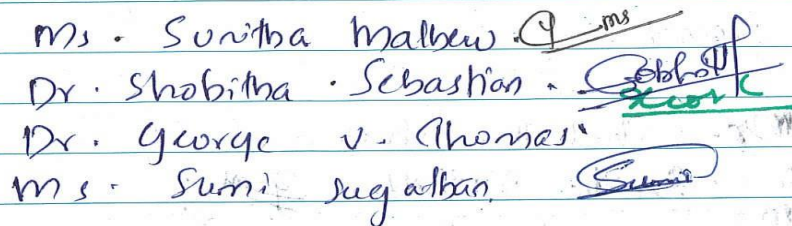 Ms. Sunitha Mathew. ms
Dr. Shobitha. Sebastian.
Dr. George V. Thomas
Ms. Sumi Sugathan. Sumi